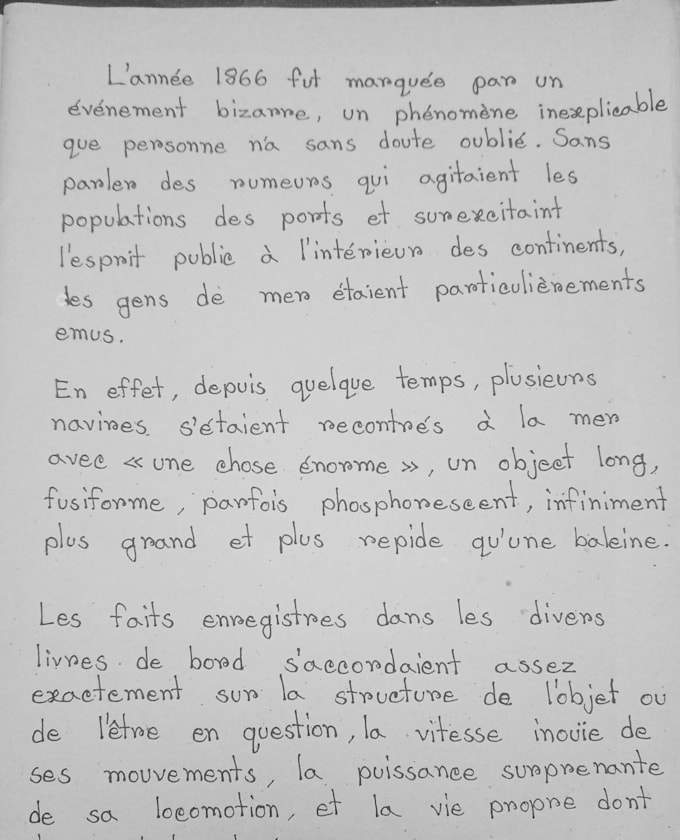 L'année 1866 fut marquée par un
événement bizarre, un phénomène inexplicable
que personne n'a sans doute oublié. Sans
parler des rumeurs qui agitaient les
populations des ports et surexcitaint
l'esprit public à l'intérieur des continents,
les gens de mer étaient particulièrements
emus.
En effet, depuis quelque temps, plusieurs
navires s'étaient recontrés à la mer
avec « une chose énorme », un object long,
fusiforme, parfois phosphorescent, infiniment
plus grand et plus repide qu'une baleine.
Les faits enregistres dans les divers
livres de bord s'accordaient assez
exactement sur la structure de l'objet ou
de l'être en question, la vitesse inouïe de
ses mouvements, la puissance surprenante
de sa locomotion, et la vie propre dont